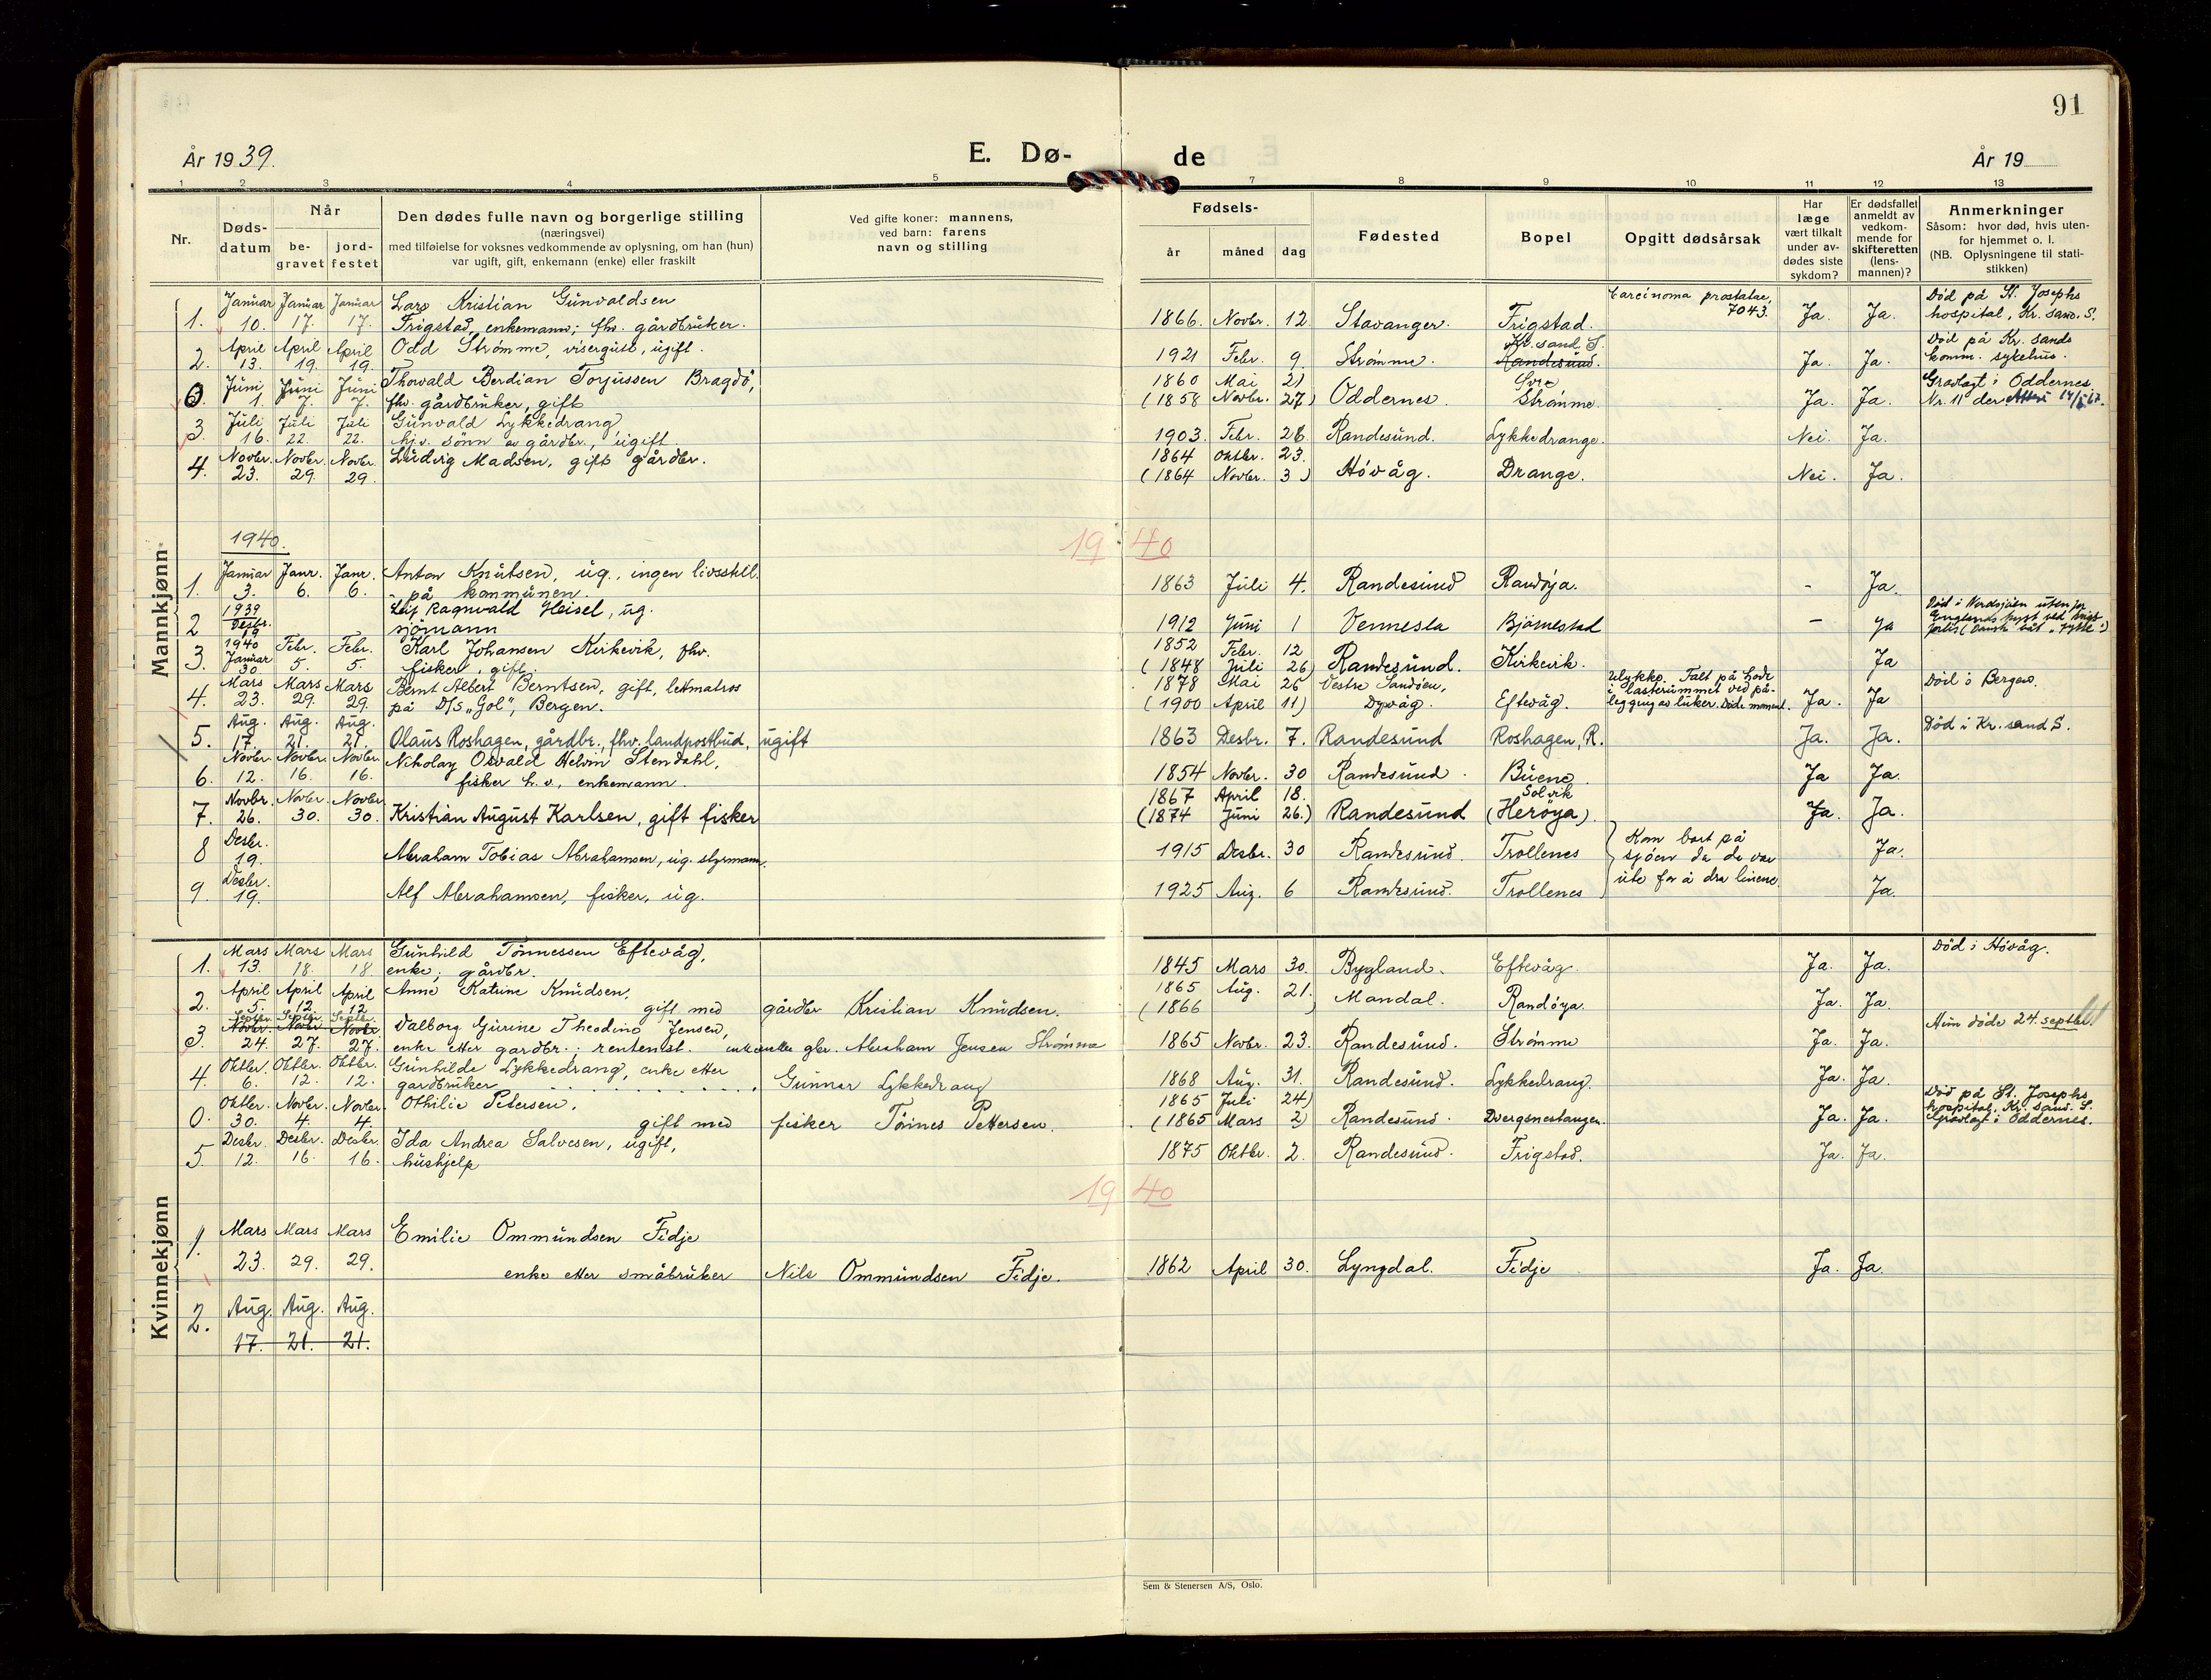 91
År 1939.
E. Dø-
de
År 19
1 2 3 4 5 7 8 9 10 11 12 13
Nr.
Døds-
datum
Når
be-
gravet
jord-
festet
Den dødes fulle navn og borgerlige stilling
(næringsvei)
med tilføielse for voksnes vedkommende av oplysning, om han (hun)
var ugift, gift, enkemann (enke) eller fraskilt
Ved gifte koner: mannens,
ved barn: farens
navn og stilling
Fødsels-
år måned dag
Fødested
Bopel
Opgitt dødsårsak
Har
læge
vært tilkalt
under av-
dødes siste
sykdom?
Er dødsfallet
anmeldt av
vedkom-
mende for
skifteretten
(lens-
mannen)?
Anmerkninger
Såsom: hvor død, hvis uten-
for hjemmet o. l.
(NB. Oplysningene til stati-
stikken)
Mannkjønn
Januar Januar Januar Lars Kristian Gunvaldsen Carcinoma prostatae, Død på St. Josephs
1. 10. 17. 17. Frigstad, enkemann; fhv. gårdbruker. 1866. Novbr. 12 Stavanger. Frigstad. 7043. Ja. Ja. hospital, Kr. sand. S.
April April April Odd Strømme, visergutt, ugift. Kr. sand S. Død på Kr. sands
2. 13. 19. 19. 1921 Febr. 9. Strømme. Randesund. Ja. Ja. komm. sykehus.
Juni Juni Juni Thorvald Berdian Torjussen Bragdö, 1860 Mai 21 Gravlagt i Oddernes.
0. 1. 7. 7. fhv. gårdbruker, gift (1858 Novbr. 27) Oddernes. Strømme. Ja. Ja. Nr. 11 der
Juli Juli Juli Gunvald Lykkedrang
3. 16. 22. 22. hjv. sønn av gårdbr., ugift. 1903. Febr. 28. Randesund. Lykkedrange. Nei. Ja.
Novbr. Novbr. Novbr. Ludvig Madsen, gift gårdbr. 1864 Oktbr. 23.
4. 23. 29. 29. (1864 Novbr. 3) Hövåg. Drange. Nei. Ja.
1940. 19 40
Januar Janr. Janr. Anton Knutsen, ug., ingen livsstill.
1. 3. 6. 6. - på kommunen. 1863 Juli 4. Randesund Randöya. - Ja.
1939 Leif Ragnvald Heisel, ug. Död i Nordsjöen utenfor
2 Desbr. 19 sjömann 1912 Juni 1 Vennesla Bjørnestad - Ja
1940 Febr. Febr. Karl Johansen Kirkevik, fhv. 1852 Febr. 12
3. Januar 30 5. 5. fisker, gift. (1848 Juli 26) Randesund. Kirkevik. Ja
Mars Mars Mars Bernt Albert Berntsen, gift, lettmatros 1878 Mai 26 Vestre Sandöen, Ulykke. Falt på hode Død i Bergen.
4. 23. 29. 29. på D/S "Gol", Bergen. (1900 April 11) Dypvåg. Eftevåg. i lasterummet ved på-
legging av luker. Døde moment. Ja. Ja
Aug. Aug. Aug. Død i Kr. sand S.
5. 17. 21. 21. Olaus Roshagen, gårdbr., fhv. landpostbud, ugift 1863 Desbr. 7. Randesund Roshagen, R. Ja. Ja.
Novbr Novbr. Novbr. Nikolay Osvald Helvin Stendahl,
6. 12. 16. 16. fisker h.v., enkemann. 1854 Novbr. 30 Randesund. Buene. Ja Ja.
Novbr. Novbr. Novbr 1867 April 18. Solvik
7. 26. 30. 30. Kristian August Karlsen, gift fisker (1874 Juni 26.) Randesund (Heröya). Ja. Ja.
Desbr. Kom bort på
8 19. Abraham Tobias Abrahamsen, ug. styrmann. 1915 Desbr. 30 Randesund. Trollenes sjöen da de var Ja.
Desbr. ute for å dra linene.
9. 19. Alf Abrahamsen, fisker, ug. 1925 Aug. 6 Randesund. Trollenes Ja.
Kvinnekjønn
Mars Mars Mars Gunhild Tönnessen Eftevåg, Død i Hövåg.
1. 13. 18. 18. enke; gårdbr. 1845 Mars 30. Bygland. Eftevåg. Ja. Ja.
April April April Anne Katrine Knudsen, 1865 Aug. 21.
2. 5. 12 12 gift med gårdbr Kristian Knudsen. (1866 ) Mandal. Randöya. Ja. Ja.
Septbr. Septbr. Septbr. Valborg Gurine Theodine Jensen, Hun döde 24. septbr.
Novbr. Novbr. Novbr.
3. 24. 27. 27. enke etter gardbr.; rentenist. enke etter gbr. Abraham Jensen Strømme 1865 Novbr. 23. Randesund. Strømme Ja. Ja.
Oktbr. Oktbr. Oktbr. Gunhilde Lykkedrang, enke etter
4. 6. 12. 12. gardbruker Gunnar Lykkedrang 1868 Aug. 31. Randesund. Lykkedrang. Ja. Ja.
Oktbr. Novbr. Novbr. Othilie Petersen, 1865 Juli 24) Død på St. Josephs
hospital, Kr. sand. S.
0. 30. 4. 4. gift med fisker Töines Pettersen. (1865 Mars 2) Randesund. Dvergsnestangen. Ja. Ja. Gravlagt i Oddernes.
Desbr. Desbr. Desbr. Ida Andrea Salvesen, ugift,
5. 12. 16. 16. hushjelp 1875 Oktbr. 2. Randesund. Frigstad. Ja. Ja.
19 40
1. Mars Mars Mars Emilie Ommundsen Fidje
23. 29. 29. enke etter småbruker Nils Ommundsen Fidje. 1862 April 30. Lyngdal. Fidje Ja. Ja.
2. Aug. Aug. Aug.
17. 21. 21.
Sem & Stenersen A/S, Oslo.